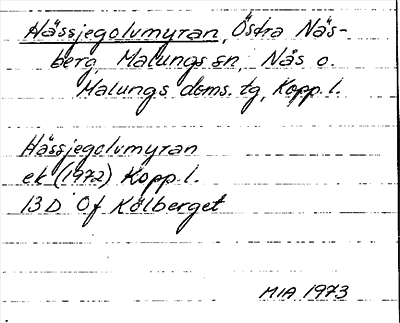 Hässjegolvmyran, Östra Näs-
berg, Malungs sn, Näs o.
Malungs doms. tg, Kopp. l.
Hässjegolvmyran
ek (1972) Kopp. l.
13 D Of Kölberget
MIA 1973